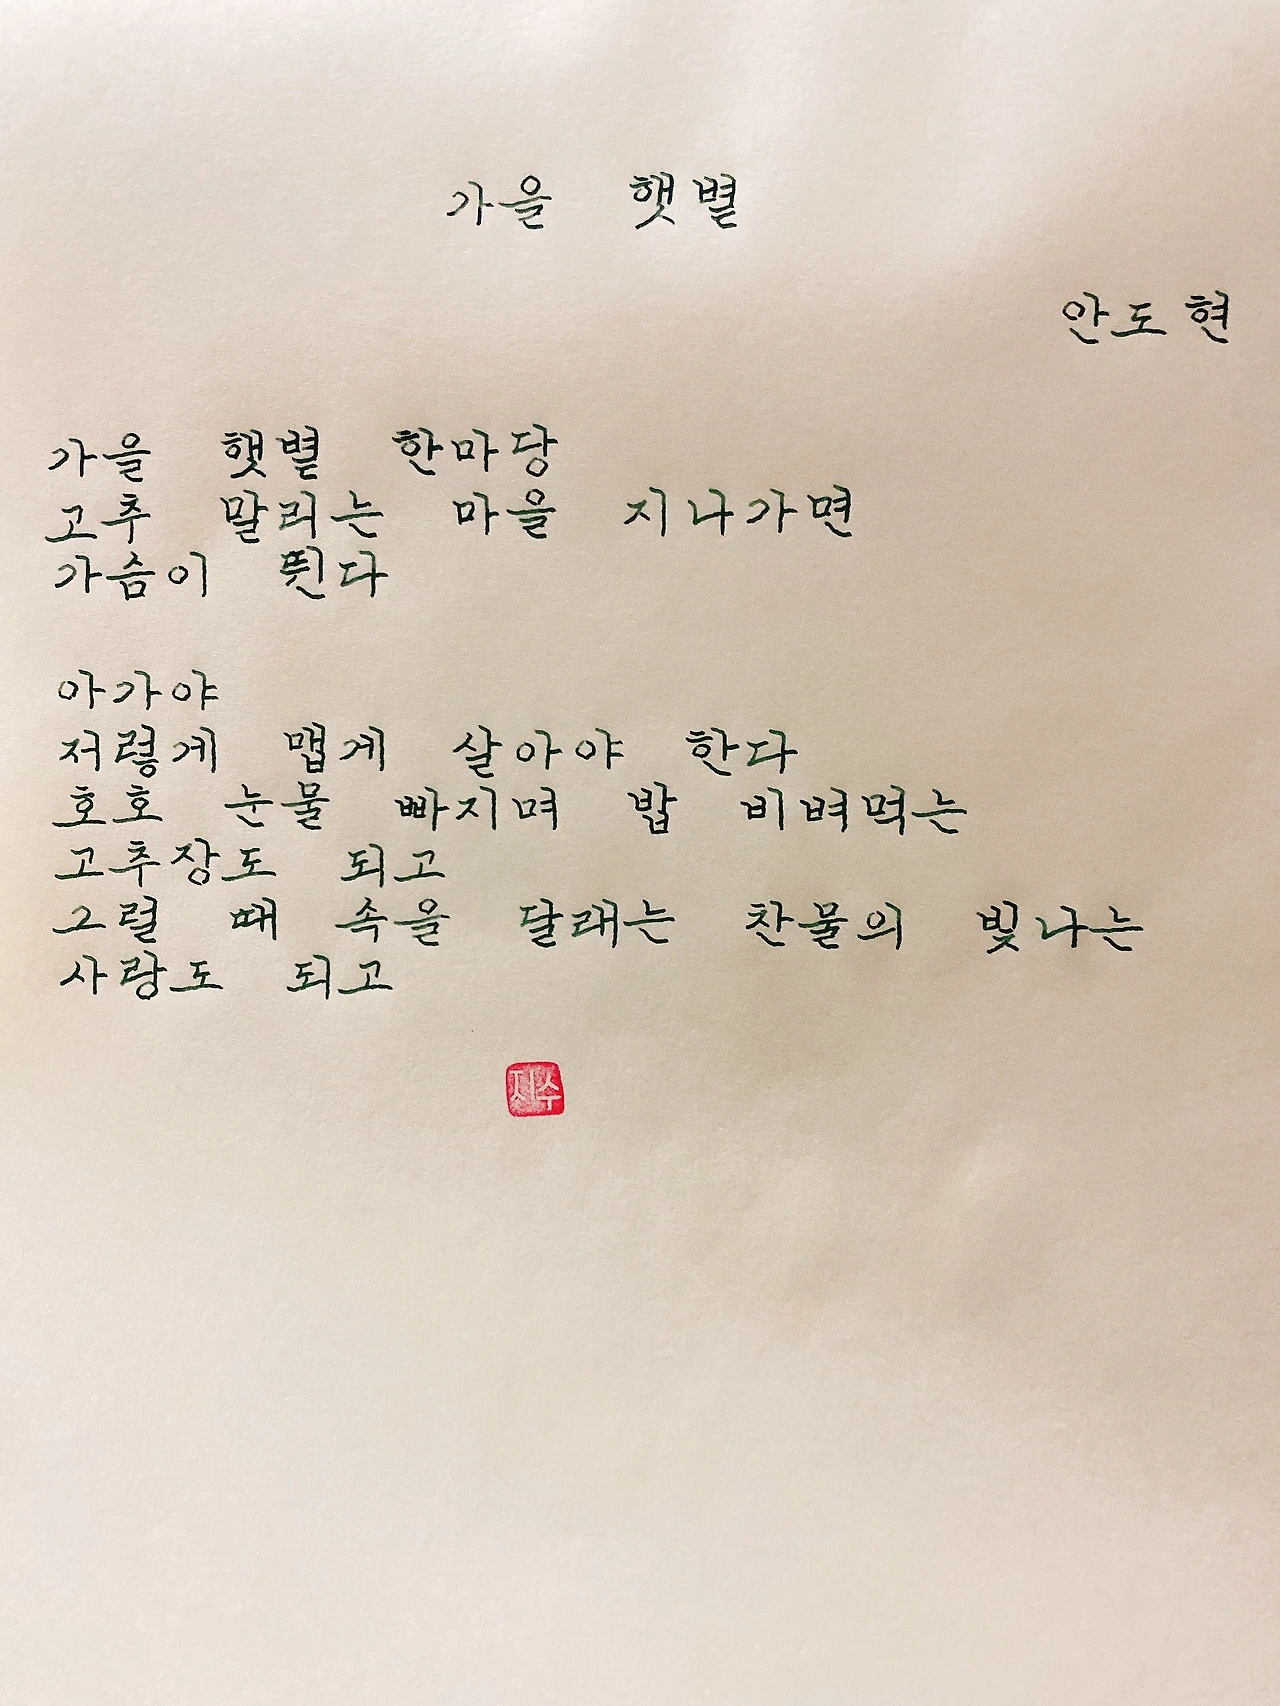 가을 햇볕
안도현
가을 햇볕 한마당
고추 말리는 마을 지나가면
가슴이 뛴다
아가야
저렇게 맵게 살아야 한다
호호 눈물 빠지며 밥 비벼먹는
고추장도 되고
그럴 때 속을 달래는 찬물의 빛나는
사랑도 되고
지수